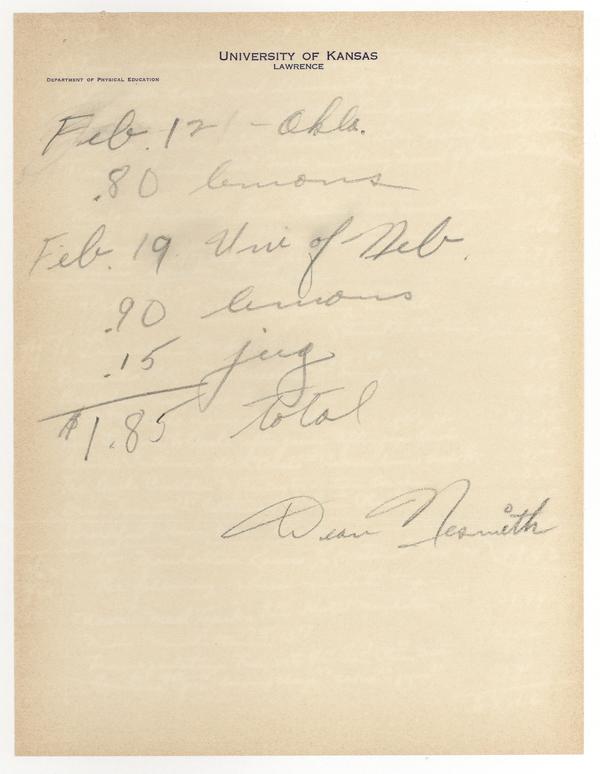 UNIVERSITY OF KANSAS
LAWRENCE
DEPARTMENT OF PHYSICAL EDUCATION
Feb. 12 - Okla.
.80 lemons
Feb. 19 Uni of Neb.
.90 lemons
.15 jug
$1.85 total
Dean Nesmith